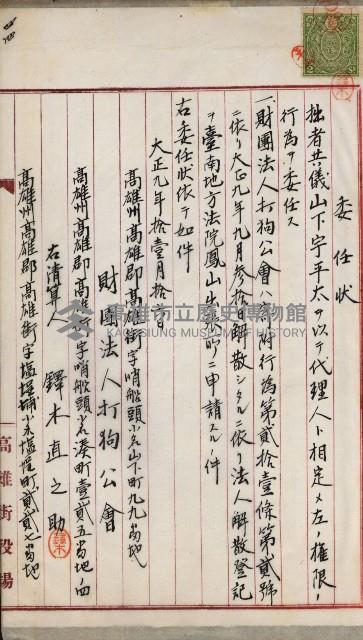 委任狀
拙者共儀山下宇平太ヲ以テ代理人ト相定メ左ノ權限ノ
行為ヲ委任ス
一、財團法人打狗公會寄附行為第貳拾壹條第貳號
ニ依リ大正九年九月參拾日解散シタルニ依リ法人解散登記
ヲ臺南地方法院鳳山出張所ニ申請スルノ件
右委任狀依テ如件
大正九年拾壹月拾日
高雄州高雄郡高雄街字哨船頭小名山下町九九番地
財團法人打狗公會
高雄州高雄郡高雄街字哨船頭小名湊町壹貳五番地ノ四
右清算人 鐸木直之助
高雄州高雄郡高雄街字塩埕埔小名塩埕町貳貳七番地
高雄街役場
高雄市立歷史博物館
KAOHSIUNG MUSEUM OF HISTORY